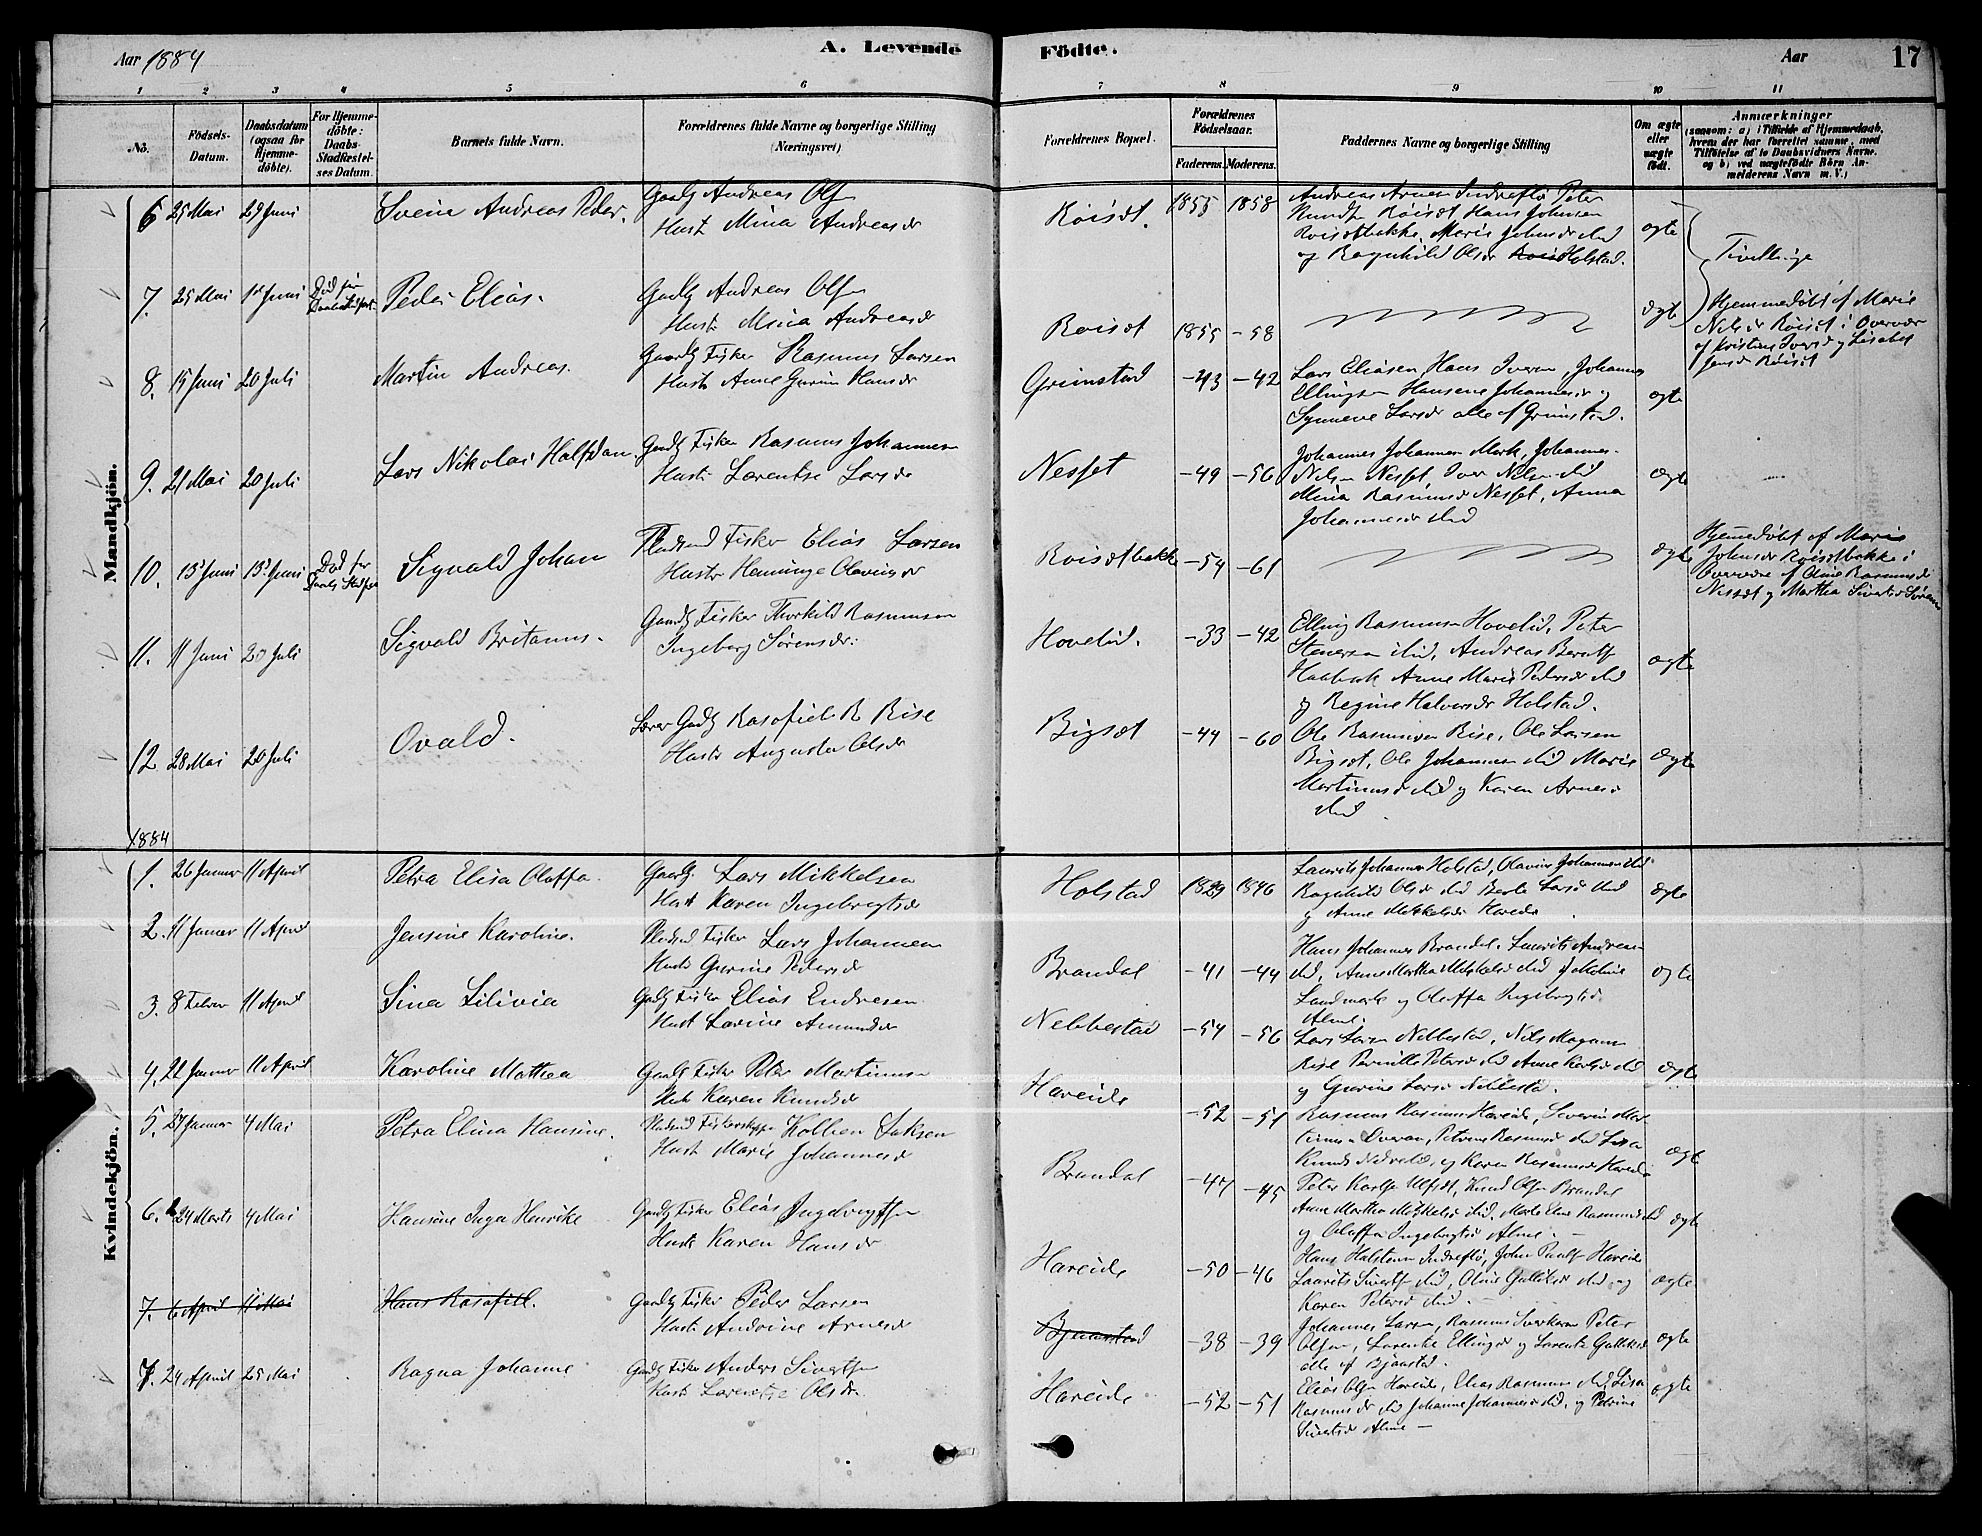 Aar 1884
A. Levende Födte.
Aar
17
1 2 3 4 5 6 7 8 9 10 11
No.
Födsels-Datum.
Daabsdatum (ogsaa for Hjemmedöbte).
For Hjemmedöbte: Daabs-Stadfestelses Datum.
Barnets fulde Navn.
Forældrenes fulde Navne og borgerlige Stilling (Næringsvei)
Forældrenes Bopæl.
Forældrenes Födselsaar.
Faderens. Moderens.
Faddernes Navne og borgerlige Stilling
Om ægte eller uægte födt.
Anmærkninger
(saasom: a) i Tilfælde af Hjemmedaab, hvem der har forrettet samme, med Tilföielse af to Daabsvidners Navne, og b) ved uægtefödte Börn Anmelderens Navn m. V.)
Mandkjön.
6 25 Mai 29 Juni Svein Andreas Peder. Gaardb Andreas Olsen
Hust Mina Andreasdr
Röisæt. 1855 1858
Andreas Arnesen Indreflø Peter
Knudsen Röisæt, Hans Johnsen
Roisætbakke, Marie Johnsdr ibid
og Ragnhild Olsdr Holstad.
ægte
Tvillinge
7. 25 Mai 1st Juni Død før Daabs Stadf. Peder Elias. Gaardb Andreas Olsen
Hust Mina Andreasdr
Roisæt 1855 -58 ægte
Hjemmedöbt af Marie
Nilsdr Röiset i Overvær
af Kristine Iversd og Lisabet
Jensdr Röiset
8. 15 Juni 20 Juli Martin Andreas. Gaardb Fisker Rasmus Larsen
Hust Anne Gurine Hansdr
Grimstad -43 -42
Lars Eliasen Hans Iversen, Johannes
Ellingsen Hansine Johannesdr og
Synneve Larsdr alle af Grimstad.
ægte
9. 21 Mai 20 Juli Lars Nikolai Halfdan. Gaardb Fisker Rasmus Johannesen
Hust Larentse Larsdr
Nesset -49 -56
Johannes Johannesen Mork, Johannes
Nilsen Nesset, Iver Nilsen ibid
Mina Rasmusdr Nesset, Anna
Johannesdr ibid
ægte
10. 13 Juni 15 Juni Død før Daabs Stadf Sigvald Johan Pladsmd Fisker Elias Larsen
Hustr Henninge Olavinedr
Roisætbakk -54 -61 ægte
Hjemmedøbt af Marie
Johnsdr Röisætbakke i
Overvære af Oline Rasmusdr
Nesset og Marthea Sivertsdr
11. 11 Juni 20 Juli Sigvald Britanus. Gaardb Fisker Thorkild Rasmussen
Ingeborg Sørensdr.
Hovelid. -33 -42
Elling Rasmusen Hovelid, Peter
Stenersen ibid, Andreas
Anne Marie Pedersdr ibid
og Regine Halvorsdr Holstad.
ægte
12. 28 Mai 20 Juli Ovald. Lærer Gaardb Rasofiel R Rise
Hust Augusta Olsdr
Bigsæt -44 -60
Ole Rasmusen Rise, Ole Larsen
Bigsæt, Ole Johannesen ibid Marie
Martinusd ibid og Karen Arnesd
ibid.
ægte
1884
Kvindekjön.
1. 26 Januar 11 April Petra Elisa Oluffa. Gaardb. Lars Mikkelsen
Hust Karen Ingebrigtsdr
Holstad 1829 1846
Laurits Johannesen Holstad, Olavius Johannesen ibid
Ragnhild Olsdr ibid Berte Larsd ibid
og Anne Mikkelsdr Hareide
ægte
2. 11 Januar 11 April Jensine Karoline. Pladsmd Fisker Lars Johannesen
Hust Gurine Pedersdr
Brandal -41 -44
Hans Johannesen Brandal, Laurits Andreasen
ibid, Anne Martha Mikkelsd ibid
Landmark og Oluffa Ingebrigtsd
Alme.
ægte
3. 8 Febr 11 April Sina Lilivia Gaardb Fisker Elias Endresen
Hust Lovine Amundsdr
Nebbestad -54 -56
Lars Larsen Nebbestad, Nils Magnusen
Rise Pernille Petersd ibid Anne Karlsdr ibid
og Gurine Larsd Nebbestad.
ægte
4. 22 Januar 11 April Karoline Mathea Gaardb Fisker Peter Martinusen
Hust Karen Knudsdr
Hareide -52 -51
Rasmus Rasmusen Hareide, Severin Martinusen
Overaa, Petrine Rasmusd ibid Lisa
Knudsd og Karen Rasmusdr Hareide
ægte
5. 27 Januar 4 Mai Petra Elina Hansine. Pladsmd Fiskerskipper Kolben Isaksen
Hust Marie Johannesdr
Brandal -47 -45
Peter Karlsen Ulfset, Knud Olsen Brandal
Anne Martha Mikkelsd ibid, Marte Eline Rasmusd ibid
og Oluffa Ingebrigtsd Alme. -
ægte
6. 24 Marts 4 Mai Hansine Inga Henrikke Gaardb Fisker Elias Ingebrigtsen
Hust Karen Hansdr
Hareide -50 -46
Hans Halstensen Indreflø, John Paulsen Hareide
Laurits Sivertsen ibid, Oline Gulliksd ibid og
Karen Petersd ibid. -
ægte
7. 6 April 11 Mai Hans Rasofiel. Gaardb Fisker Peder Larsen
Hust Andrine Arnesdr
Bjaastad -38 -39
Johannes Larsen, Rasmus Sverkersen Peter
Olsen, Larentse Ellingsd og Larentse Gulliksd
alle af Bjaastad.
ægte
7. 24 April 25 Mai Ragna Johanne Gaardb Fisker Anders Sivertsen
Hust Larentse Olsdr.
Hareide -52 -51
Elias Olsen Hareide, Elias Rasmusen ibid, Lisa
Rasmusdr ibid Johanne Johannesdr ibid, og Petrine
Sivertsd Alme -
ægte